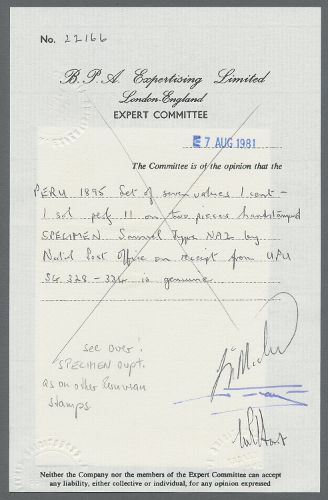 No. 22166
B.P.A. Expertising Limited
London-England
EXPERT COMMITTEE
7 AUG 1981
The Committee is of the opinion that the
PERU 1895 Set of seven values 1 cent -
1 sol perf 11 on two pieces handstamped
SPECIMEN Samuel Type NA2 by
Nat'l Post Office on receipt from UPU
SG 328-334 is genuine
see over!
SPECIMEN ovpt.
as on other Peruvian
stamps
Neither the Company nor the members of the Expert Committee can accept
any liability, either collective or individual, for any opinion expressed